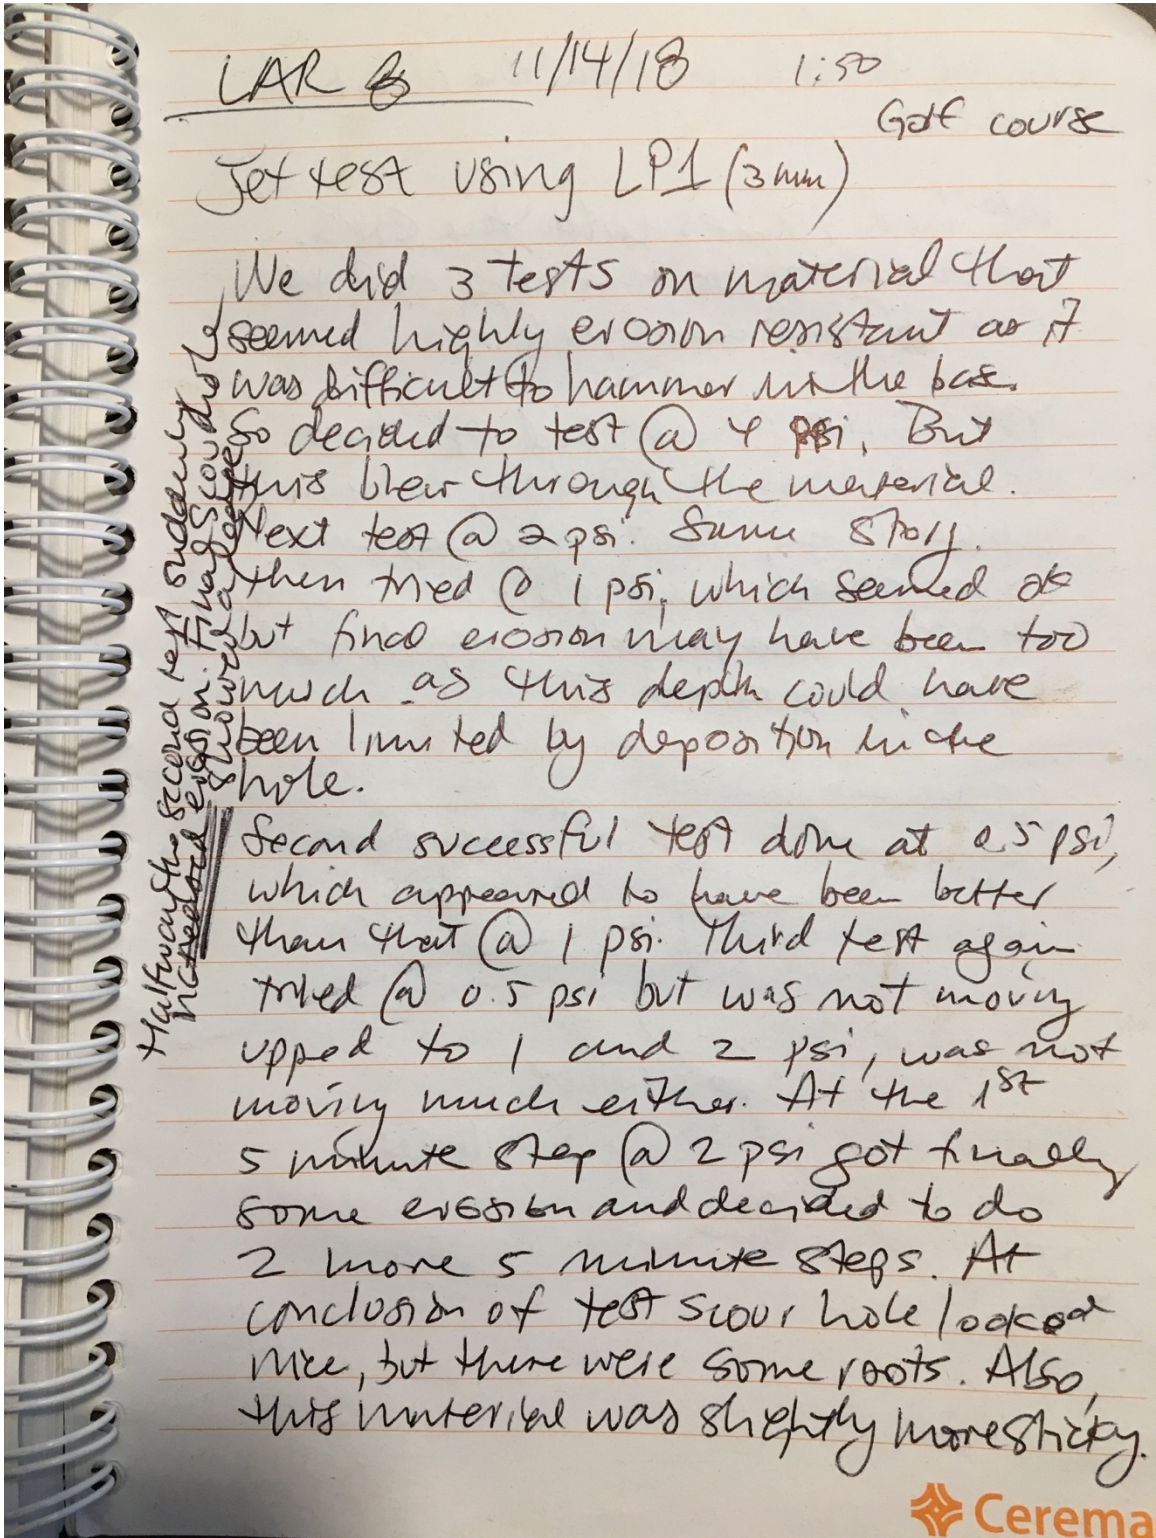 LAR 8 11/14/18 1:50
Golf course
Jet test using LP1 (3mm)
We did 3 tests on material that
seemed highly erosion resistant as it
was difficult to hammer in the base.
So decided to test @ 4 psi. But
this blew through the material.
Next test @ 2 psi. Same story.
then tried @ 1 psi, which seemed ok
but final erosion may have been too
much as this depth could have
been limited by deposition in the
hole.
Second successful test done at 0.5 psi,
which appeared to have been better
than that @ 1 psi. Third test again
tried @ 0.5 psi but was not moving
upped to 1 and 2 psi, was not
moving much either. At the 1st
5 minute step @ 2 psi got finally
some erosion and decided to do
2 more 5 minute steps. At
conclusion of test scour hole looked
nice, but there were some roots. Also,
this material was slightly more sticky.
Halfway the second test suddenly
erosion. Final scour hole
showed
Cerema